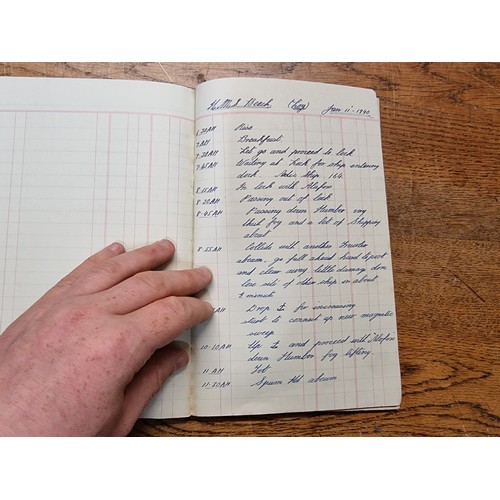 H.M.S. Beech (Log) Jan 11 - 1940
6.30AM Rise
7AM Breakfast
7-30AM Let go and proceed to lock
7-45AM Waiting at lock for ship entering
dock.
8-15AM In lock with
8-20AM Passing out of lock
8-45AM Passing down Humber very
thick fog and a lot of shipping
about
8-55AM Collide with another Trawler
abeam, go full ahead hard to port
and clear away little damage done
lose side of other ship in about
½ minute
AM Drop for increasing
start to connect up new magnetic
sweep
10-10AM Up and proceed with
down Humber fog lifting.
11 AM
11-30AM Spurn Hd abeam